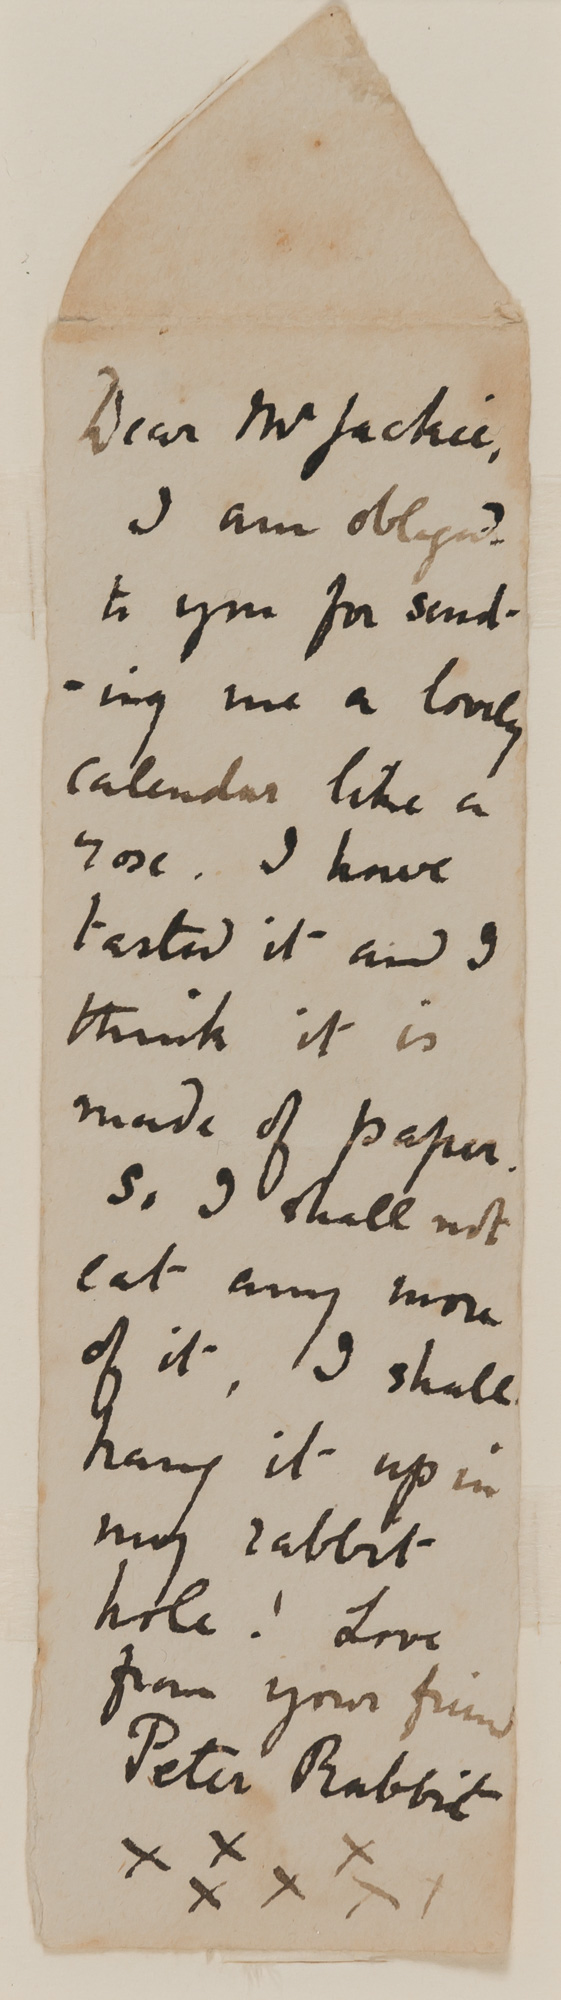 Dear Mr Jackie,
I am obliged
to you for send-
-ing me a lovely
calendar like a
rose. I have
tasted it and I
think it is
made of paper.
So I shall not
eat any more
of it, I shall
hang it up in
my rabbit
hole! Love
from your friend
Peter Rabbit
x x x
x x x x